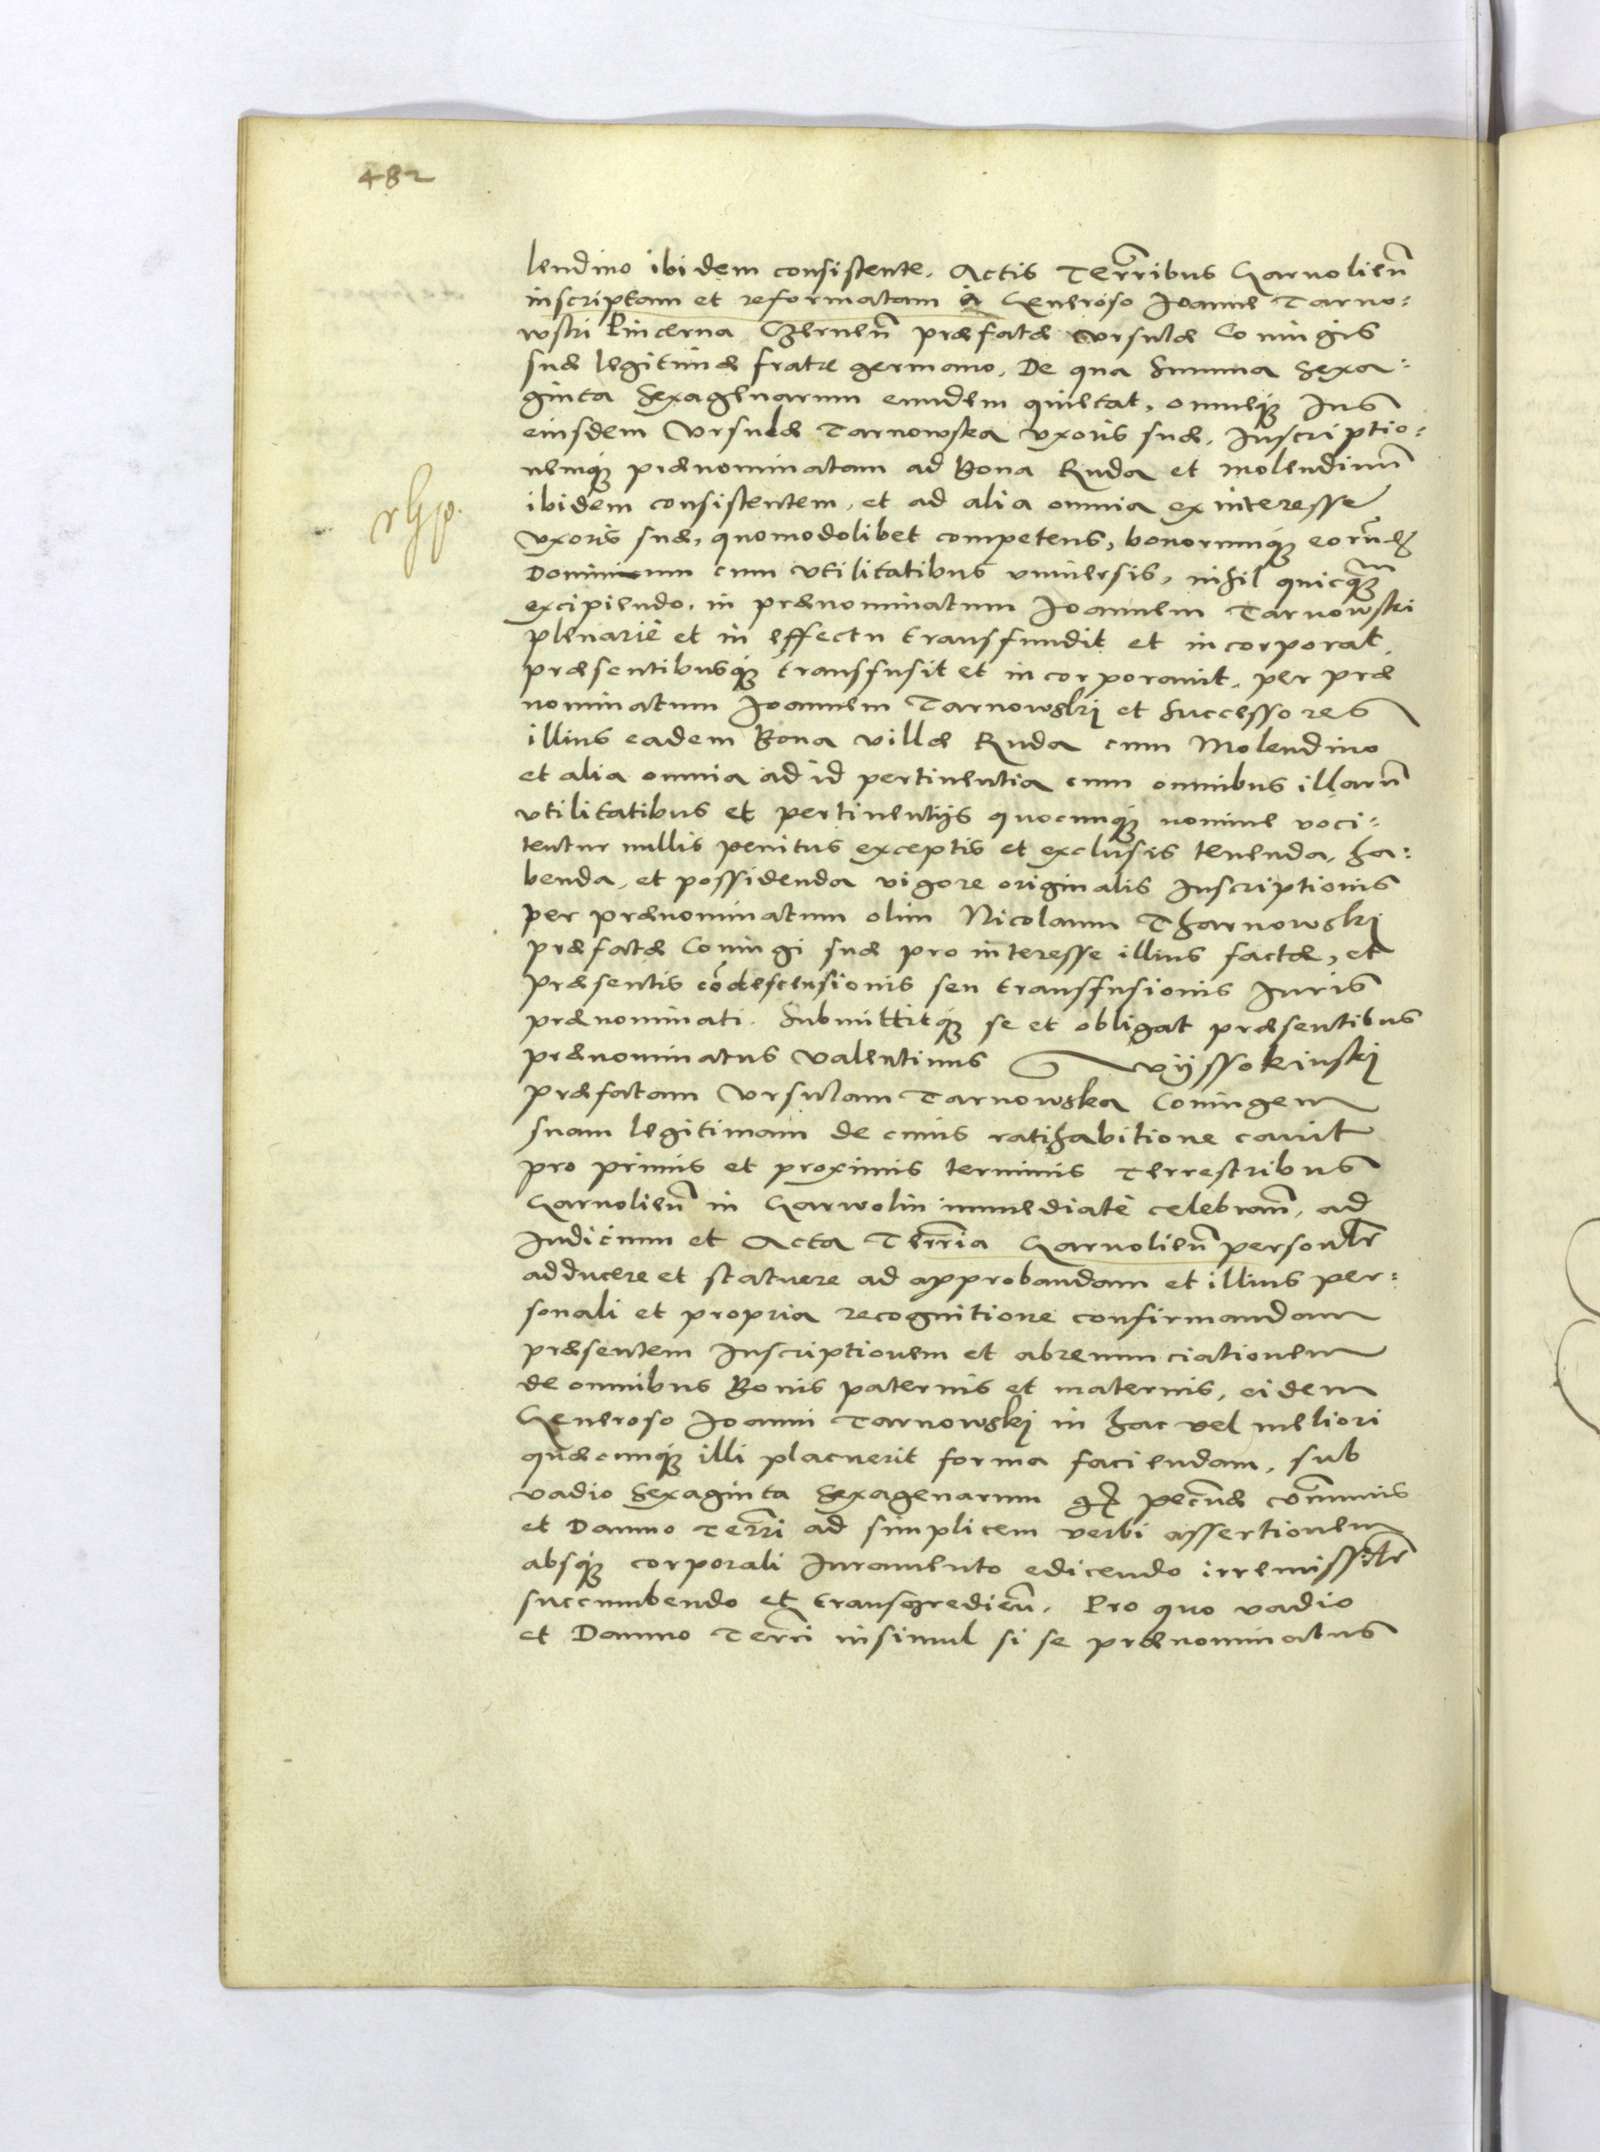 482
lendino ibidem consistente. Actis Terr̃ibus Garuolieñ
inscriptam et reformatam à Generoso Joanne Tarno:
wski Pincerna Czerneñ præfatæ Vrsulæ Coniugis
suæ legitimæ fratre germano. De qua Summa Sexa:
ginta Sexagenarum eundem quietat, omneq́ue Jus
eiusdem Vrsulæ Tarnowska vxoris suæ. Inscriptio:
nemq́ue prænominatam ad Bona Ruda et Molendinũ
ibidem consistentem, et ad alia omnia ex interesse
vxoris suæ, quomodolibet competens, bonorumq́ue eorũd
Dominium cum vtilitatibus vniuersis, nihil quicq̃uam
excipiendo, in prænominatum Joannem Tarnowski
plenariè et in effectu transfundit et incorporat,
præsentibusq́ue transfusit et incorporauit, per præ
nominatum Joannem Tarnowskj et Successores
illius eadem Bona villæ Ruda cum Molendino
et alia omnia ad id pertinentia cum omnibus illarũ
vtilitatibus et pertinentijs quocunq́ue nomine voci:
tentur nullis penitus exceptis et exclusis tenenda, ha:
benda, et possidenda vigore originalis Inscriptionis
per prænominatum olim Nicolaum Tharnowskj
præfatæ Coniugi suæ pro interesse illius factæ, et
præsentis cõdescensionis seu transfusionis Juris
prænominati. Submittitq́ue se et obligat præsentibus
prænominatus Valentinus Wyssokinskj
præfatam Vrsulam Tarnowska Coniugem
suam legitimam de cuius ratihabitione cauit
pro primis et proximis terminis Terrestribus
Garuolieñ in Garwolin immediatè celebrañ, ad
Judicium et Acta Terr̃ia Garuolieñ personlr̃
adducere et statuere ad approbandam et illius per:
sonali et propria recognitione confirmandam
præsentem Inscriptionem et abrenunciationem
de omnibus Bonis paternis et maternis, eidem
Generoso Joanni Tarnowskj in hac vel meliori
quæcunq́ue illi placuerit forma faciendam, sub
vadio Sexaginta Sexagenarum pecũæ cõmunis
et Damno Terr̃i ad simplicem verbi assertionem
absq́ue corporali Juramento edicendo irremissiblr̃
succumbendo et transgredieñ. Pro quo vadio
et Damno Terr̃i insimul si se prænominatus